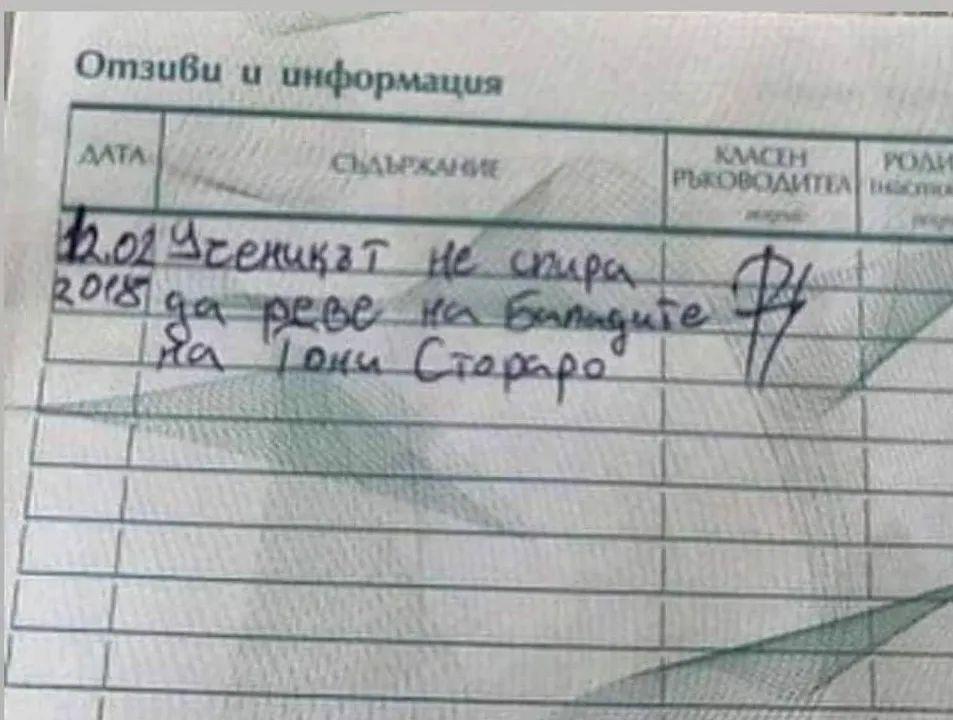 Отзиви и информация
ДАТА СЪДЪРЖАНИЕ КЛАСЕН РЪКОВОДИТЕЛ РОДИ
12.02 Ученикът не спира
2018 да реве на баладите
на Тони Стораро